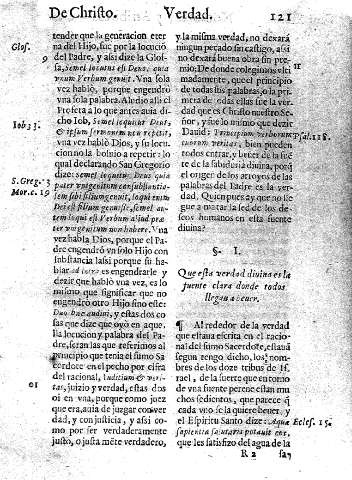 De Christo. Verdad. 121
tender que la generacion eter
na del Hijo, fue por la locució
del Padre, y assi dize la Glos
sa, Semel locutus est Deus, quia
vnum Verbum genuit. Vna sola
vez habló, porque engendró
vna sola palabra. Aludio assi el
Profeta a lo que antes auia di
cho Iob, Semel loquitur Deus,
& ipsum sermonem non repetit,
vna vez habló Dios, y su locu
cion no la boluio a repetir: lo
qual declarando San Gregorio
dize: Semel loquitur Deus quia
pater vnigenitum consubstantia-
lem sibi filium genuit, loqui enim
Dei est filium genuisse, semel au-
tem loqui est Verbum aliud præ
ter vnigenitum non habere. Vna
vez habla Dios, porque el Pa
dre engendró vn solo Hijo con
substancia
blar ad intra es engendrarle y
dezir que habló vna vez, es lo
mismo que significar que no
engendró otro Hijo sino este:
Duo hæc audiui, y estas dos co
sas que dize que oyò en aque
lla locucion y palabra del Pa-
dre, seran las que referimos al
principio que tenia el sumo Sa
cerdote en el pecho por cifra
del racional, Iuditium & veri-
tas, juizio y verdad, estas dos
oi en vna, porque como juez
que era, auia de juzgar con ver
dad, y con justicia, y assi co-
mo por ser verdaderamente
justo, o justa mête verdadero,
Glos.
9
Iob 33.
S. Greg. 23
Mor. c. 15
10
y la misma verdad, no dexará
ningun pecado sin castigo, assi
no dexará buena obra sin pre
mio; De donde colegimos vlti
madamente, que el principio
de todas sus palabras, o la prime
ra de todas ellas fue la ver
dad que es Christo nuestro Se-
ñor, y fue lo mismo que dezir
Dauid: Principium verborum
tuorum veritas, bien pueden
todos entrar, y beuer de la fuē
te de la sabiduria diuina, que
el origen de los arroyos de las
palabras del Padre es la ver-
dad. Quien pues ay que no lle
gue a matar la sed de los de-
seos humanos en esta fuente
diuina?
11
Psal. 118.
§. I.
Que esta verdad diuina es la
fuente clara donde todos
llegan a beuer.
¶ Al rededor de la verdad
que estaua escrita en el racio
nal del sumo Sacerdote, estauā
segun tengo dicho, los nom-
bres de los doze tribus de Is-
rael, de la suerte que en torno
de vna fuente perene estan mu
chos sedientos, que parece q̃
cada vno se la quiere beuer, y
el Espiritu Santo dize: Aquæ
sapientiæ salutaris potauit eos,
que les satisfizo del agua de la
Ecles. 15.
R 2 sa-